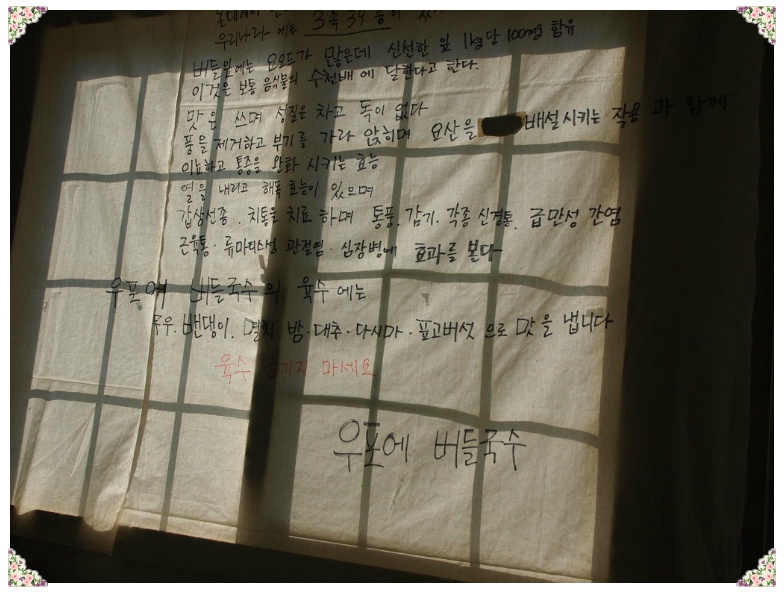 우리나라 에는 3속 39종이
버들잎에는 요오드가 많은데 신선한 잎 1kg당 100mg 함유
이것은 보통 음식물의 수천배에 달한다고 한다.
맛은 쓰며 성질은 차고 독이 없다
풍을 제거하고 부기를 가라 앉히며 요산을 배설시키는 작용 과 함께
이뇨하고 통증을 완화 시키는 효능
열을 내리고 해독 효능이 있으며
갑상선종. 치통을 치료 하며 통풍. 감기. 각종 신경통. 급만성 간염
근육통. 류마티스성 관절염. 심장병에 효과를 본다
우포에 버들국수의 육수에는
무우. 밴댕이. 멸치 밤.대추.다시마.표고버섯 으로 맛을 냅니다
육수 남기지 마세요
우포에 버들국수